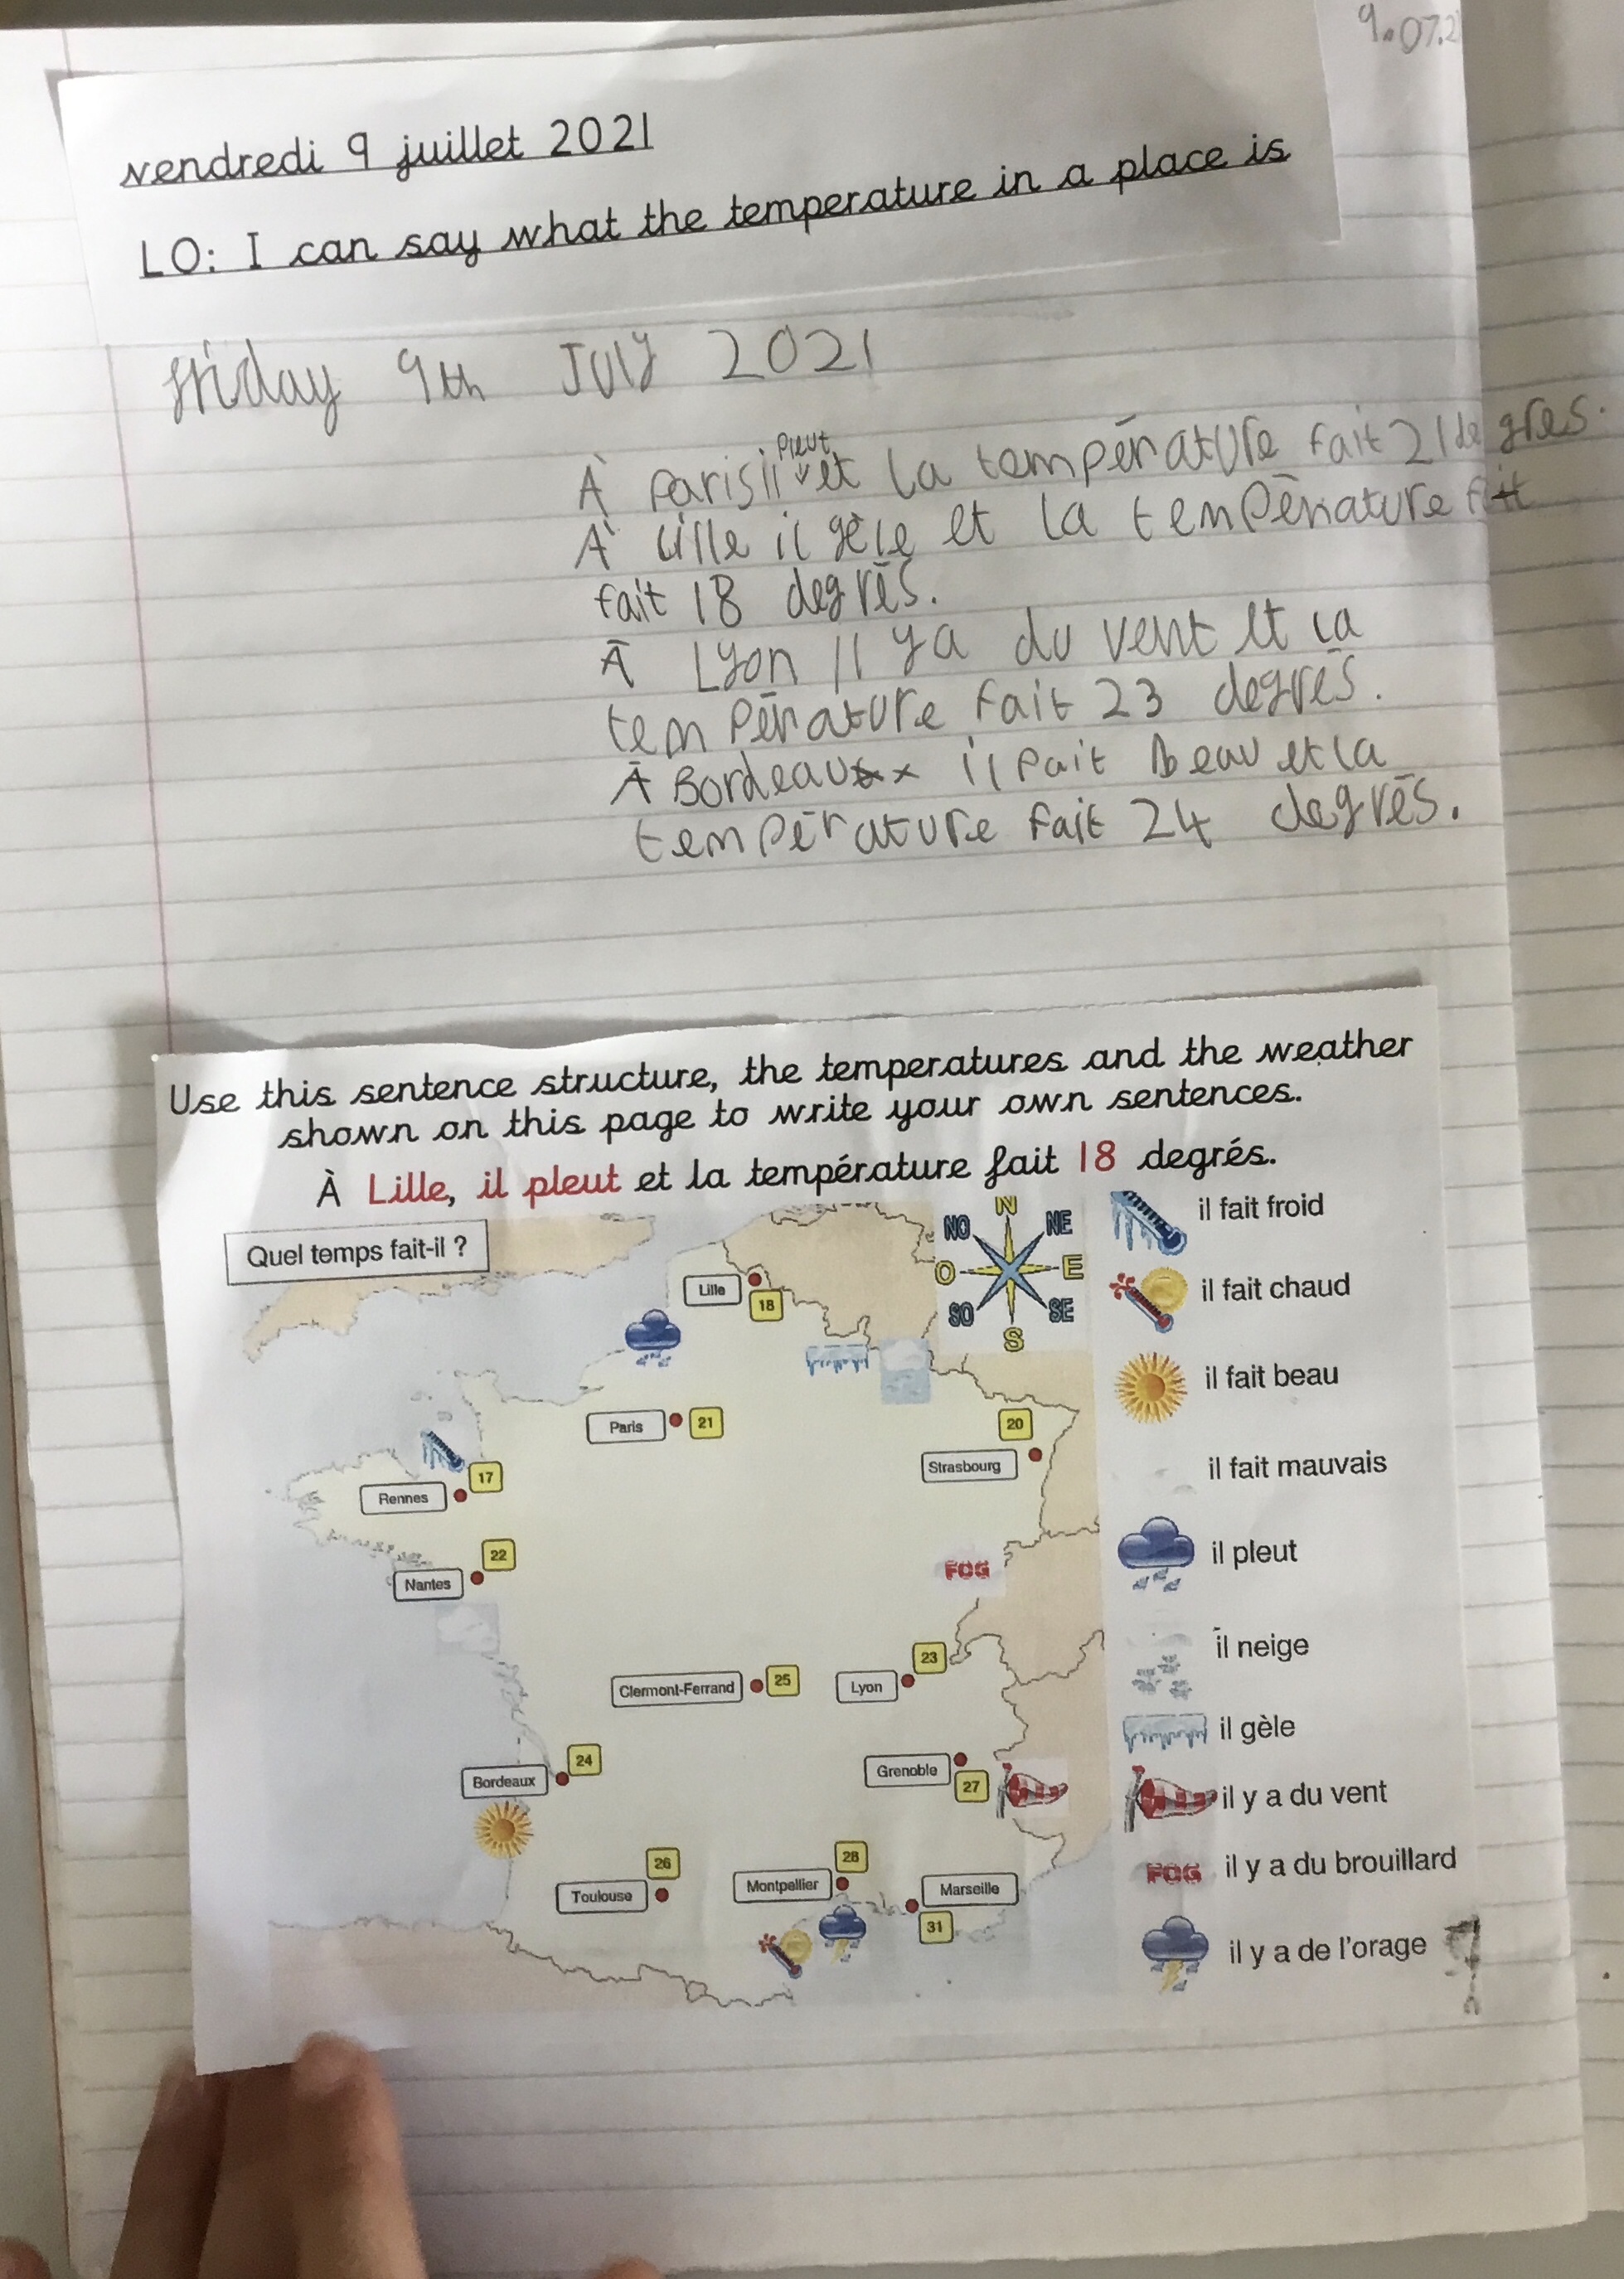 9.07.2
vendredi 9 juillet 2021
LO: I can say what the temperature in a place is
friday 9th July 2021
pleut
À paris il et la température fait 21 degres.
À Lille il gèle et la température fait
fait 18 degrēs.
Ā Lyon il y a du vent et la
tempērature fait 23 degrēs.
Ā Bordeaux il fait beau et la
tempērature fait 24 degrēs.
Use this sentence structure, the temperatures and the weather
shown on this page to write your own sentences.
À Lille, il pleut et la température fait 18 degrés.
Quel temps fait-il ?
N
NO NE
O E
SO SE
S
Lille
18
Paris 21
20
Strasbourg
17
Rennes
22
Nantes
FOG
23
Clermont-Ferrand 25
Lyon
24
Bordeaux
Grenoble
27
26
Toulouse
28
Montpellier
Marseille
31
il fait froid
il fait chaud
il fait beau
il fait mauvais
il pleut
il neige
il gèle
il y a du vent
FOG il y a du brouillard
il y a de l'orage